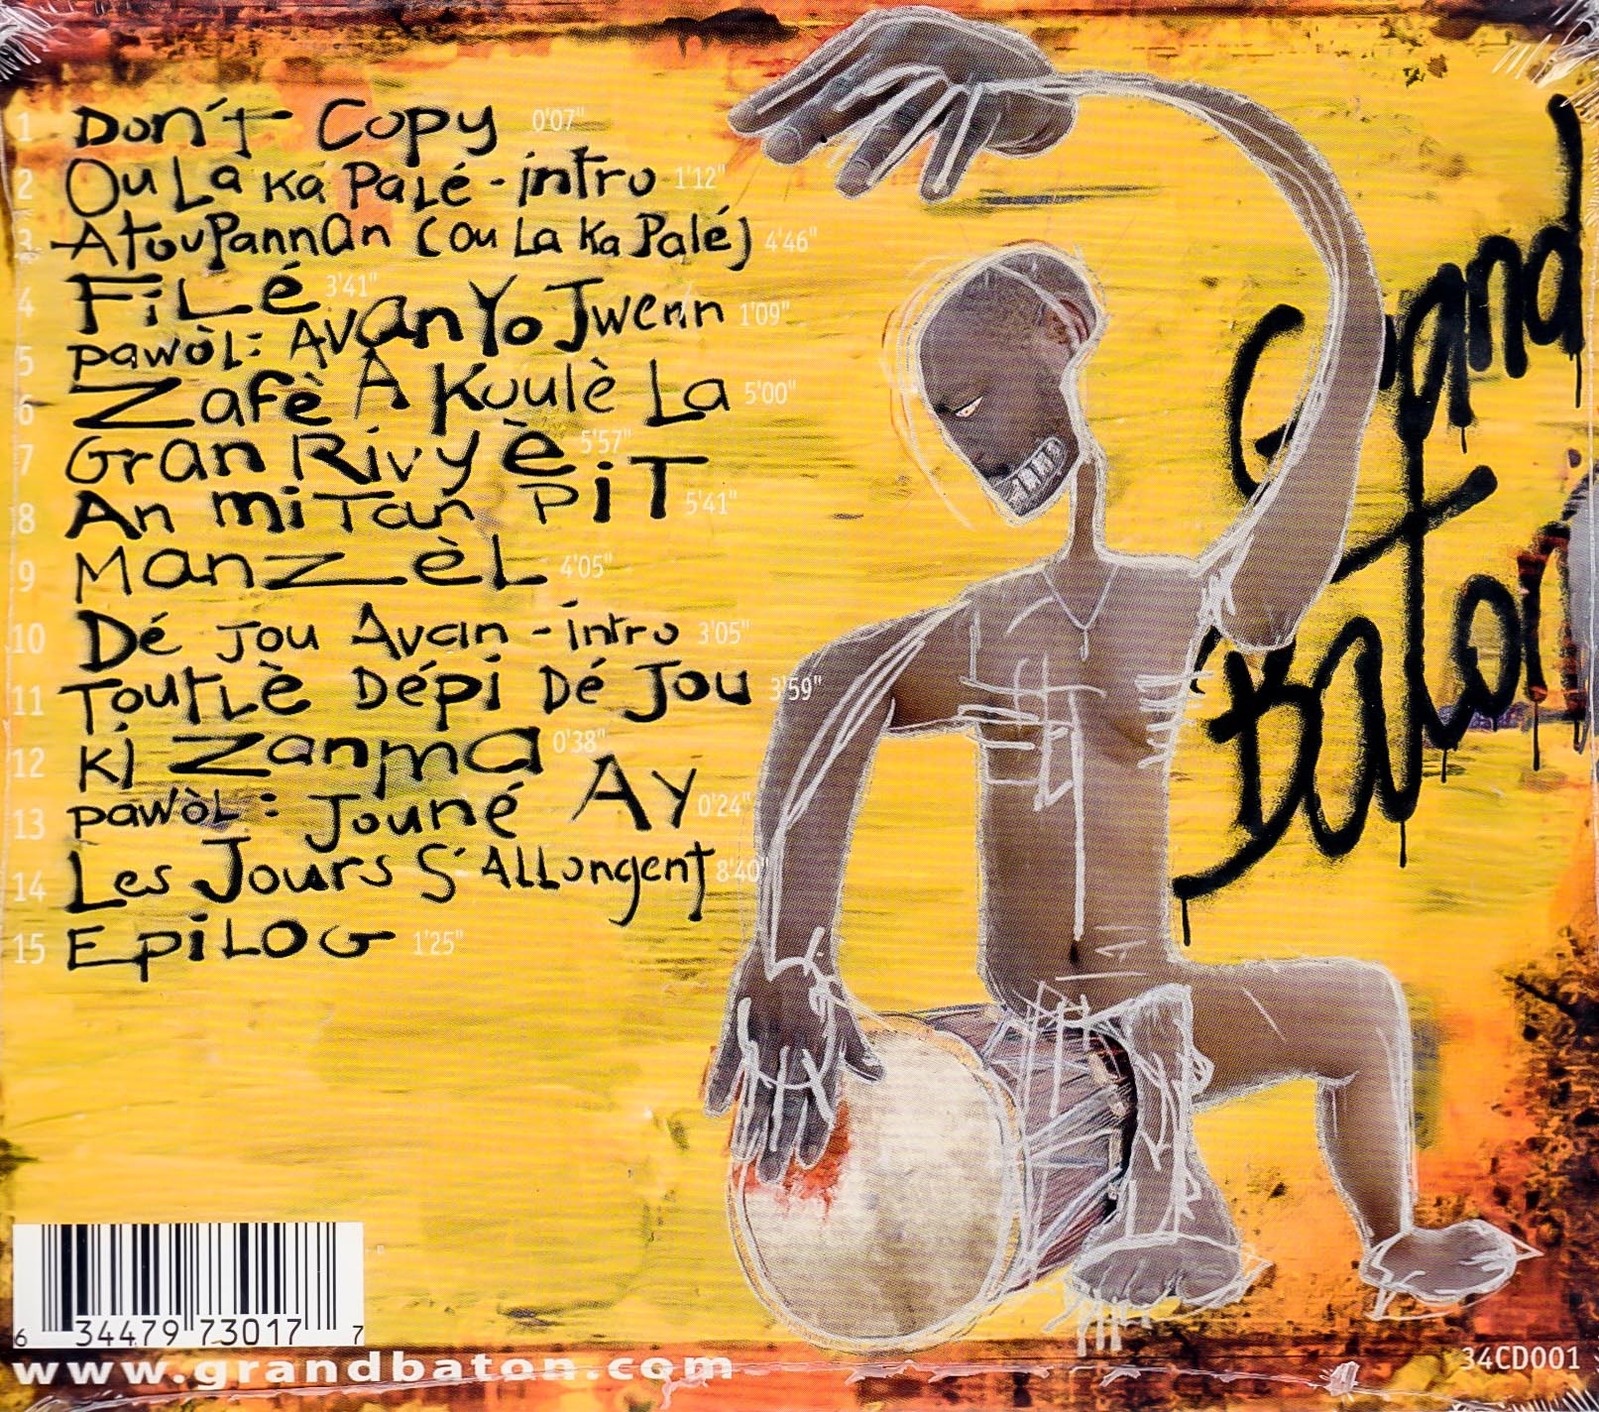 1 Don't Copy 0'07"
2 Ou La Ka Palé - intro 1'12"
3 Atoupannan (Ou La Ka Palé) 4'46"
4 Filé 3'41"
5 pawòl: Avan Yo Jwenn 1'09"
6 Zafè A Koulè La 5'00"
7 Gran Rivyè 5'57"
8 An mitan Pit 5'41"
9 Manzèl 4'05"
10 Dé Jou Avan - intro 3'05"
11 Toutlè Dépi Dé Jou 3'59"
12 Ki Zanma 0'38"
13 pawòl: Jouné Ay 0'24"
14 Les Jours S'Allongent 8'40"
15 Epilog 1'25"
Grand
Baton
6 34479 73017 7
www.grandbaton.com
34CD001